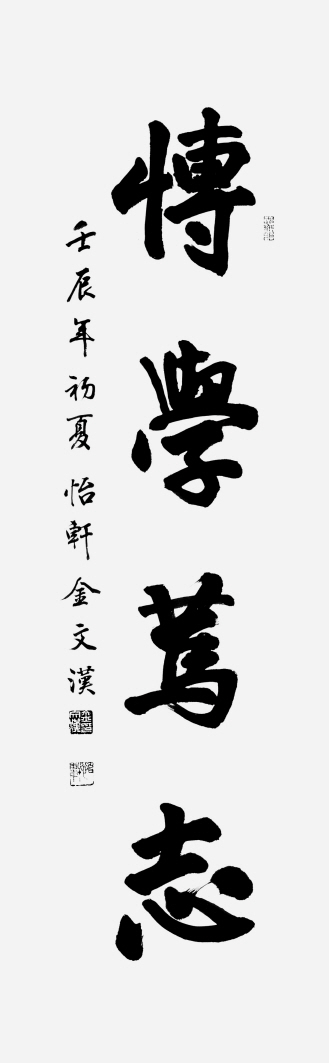 博學篤志
壬辰年初夏怡軒金文漢